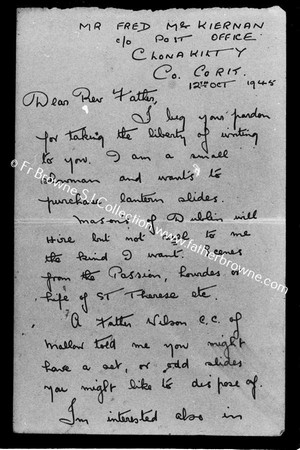 MR FRED McKIERNAN
c/o POST OFFICE
CLONAKILTY
Co. CORK.
12TH OCT 1945
Dear Rev Father,
I beg your pardon
for taking the liberty of writing
to you. I am a small
showman and wants to
purchase lantern slides.
Masons of Dublin will
Hire but not sell to me
the kind I want. Scenes
from the Passion, Lourdes or
Life of ST Therese etc.
A Father Wilson C.C. of
Mallow told me you might
have a set, or odd slides
you might like to dispose of.
I'm interested also in
© Fr Browne S.J. Collection www.fatherbrowne.com